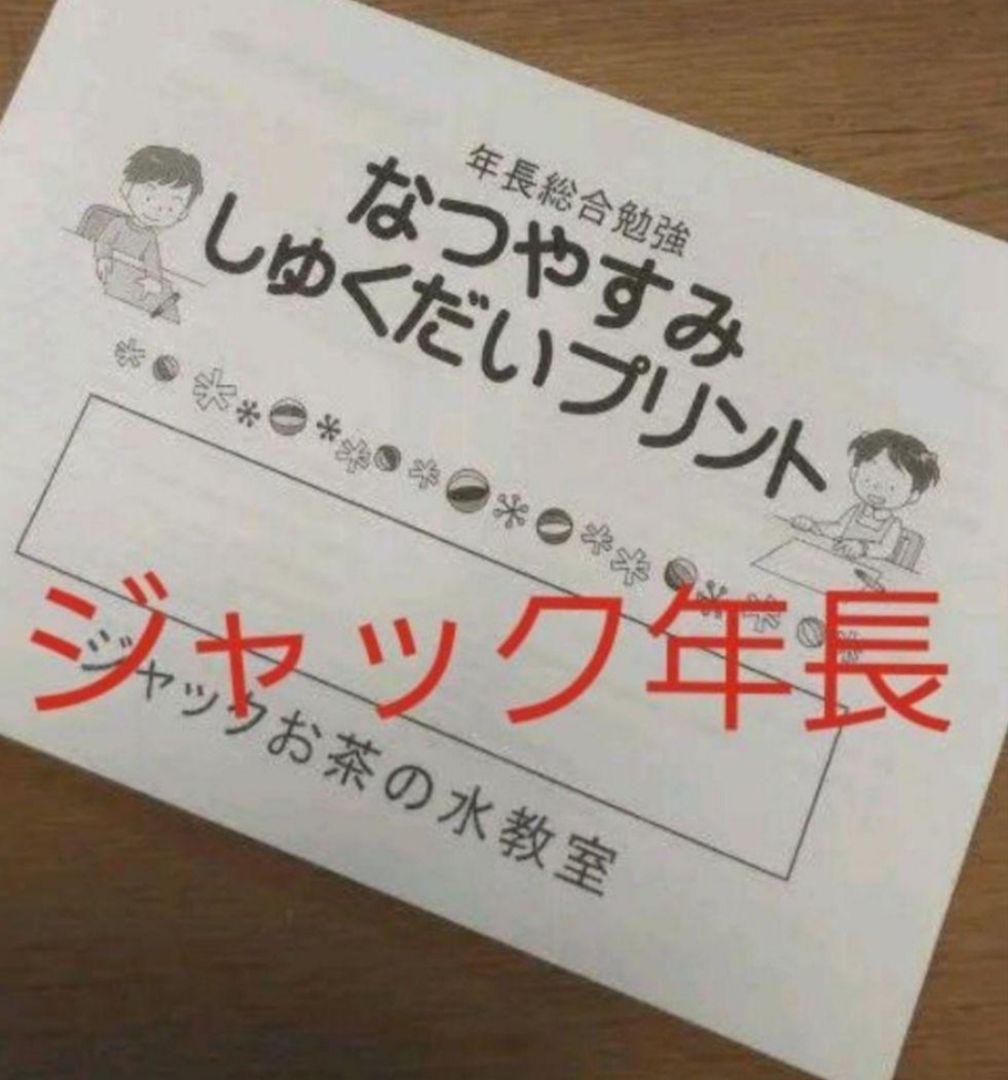 年長総合勉強
なつやすみ
しゅくだいプリント
ジャック年長
ジャックお茶の水教室